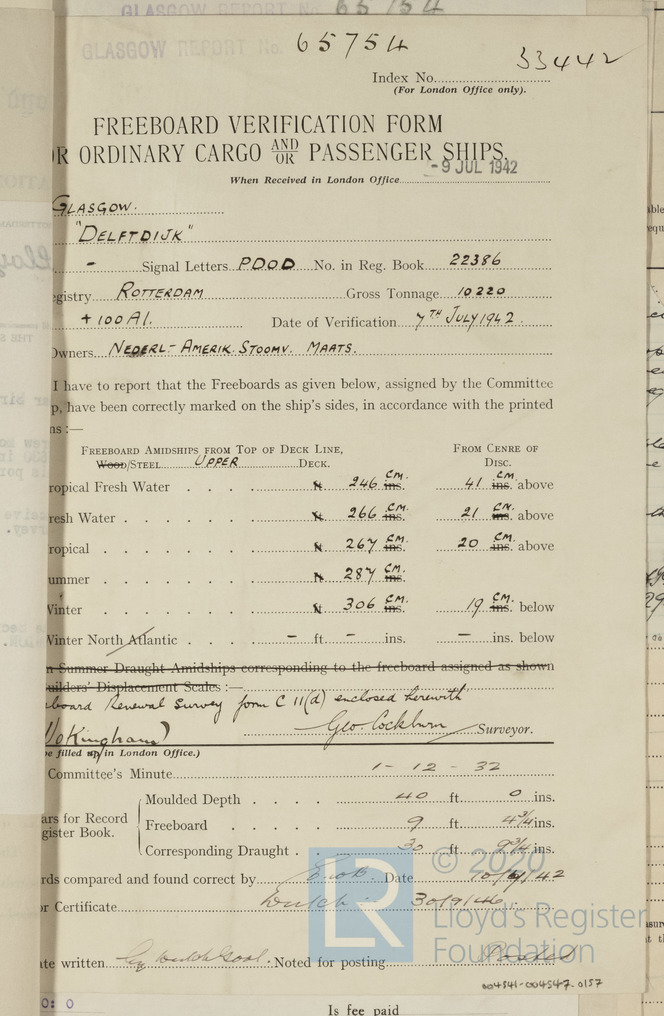 GLASGOW REPORT No. 65754
GLASGOW REPORT No. 65754
33442
Index No.
(For London Office only).
FREEBOARD VERIFICATION FORM
R ORDINARY CARGO AND/OR PASSENGER SHIPS.
-9 JUL 1942
When Received in London Office
GLASGOW.
"DELFTDIJK"
- Signal Letters PDOD No. in Reg. Book 22386
egistry ROTTERDAM Gross Tonnage 10220
+100A1. Date of Verification 7TH JULY 1942.
Owners NEDERL-AMERIK. STOOMV. MAATS.
I have to report that the Freeboards as given below, assigned by the Committee
p, have been correctly marked on the ship's sides, in accordance with the printed
ns :—
FREEBOARD AMIDSHIPS FROM TOP OF DECK LINE, FROM CENRE OF
Wood/STEEL UPPER DECK. DISC.
ropical Fresh Water 246 CM. ins. 41 CM. ins. above
resh Water 266 CM. ins. 21 CM. ins. above
ropical 267 CM. ins. 20 CM. ins. above
ummer 287 CM. ins.
Winter 306 CM. ins. 19 CM. ins. below
Winter North Atlantic - ft - ins. - ins. below
n Summer Draught Amidships corresponding to the freeboard assigned as shown
uilders' Displacement Scales :—
board Renewal Survey form C 11(d) enclosed herewith
Geo. Cockburn Surveyor.
e filled up in London Office.)
Committee's Minute 1-12-32
Moulded Depth 40 ft 0 ins.
ars for Record
gister Book.
Freeboard 9 ft 4 3/4 ins.
Corresponding Draught 30 ft 9 3/4 ins.
rds compared and found correct by Date 10/7/42
or Certificate Dutch 30/9/46
te written Noted for posting Posted
© 2020
Lloyd's Register
Foundation
LR
004541-004547-0157
0: 0
Is fee paid